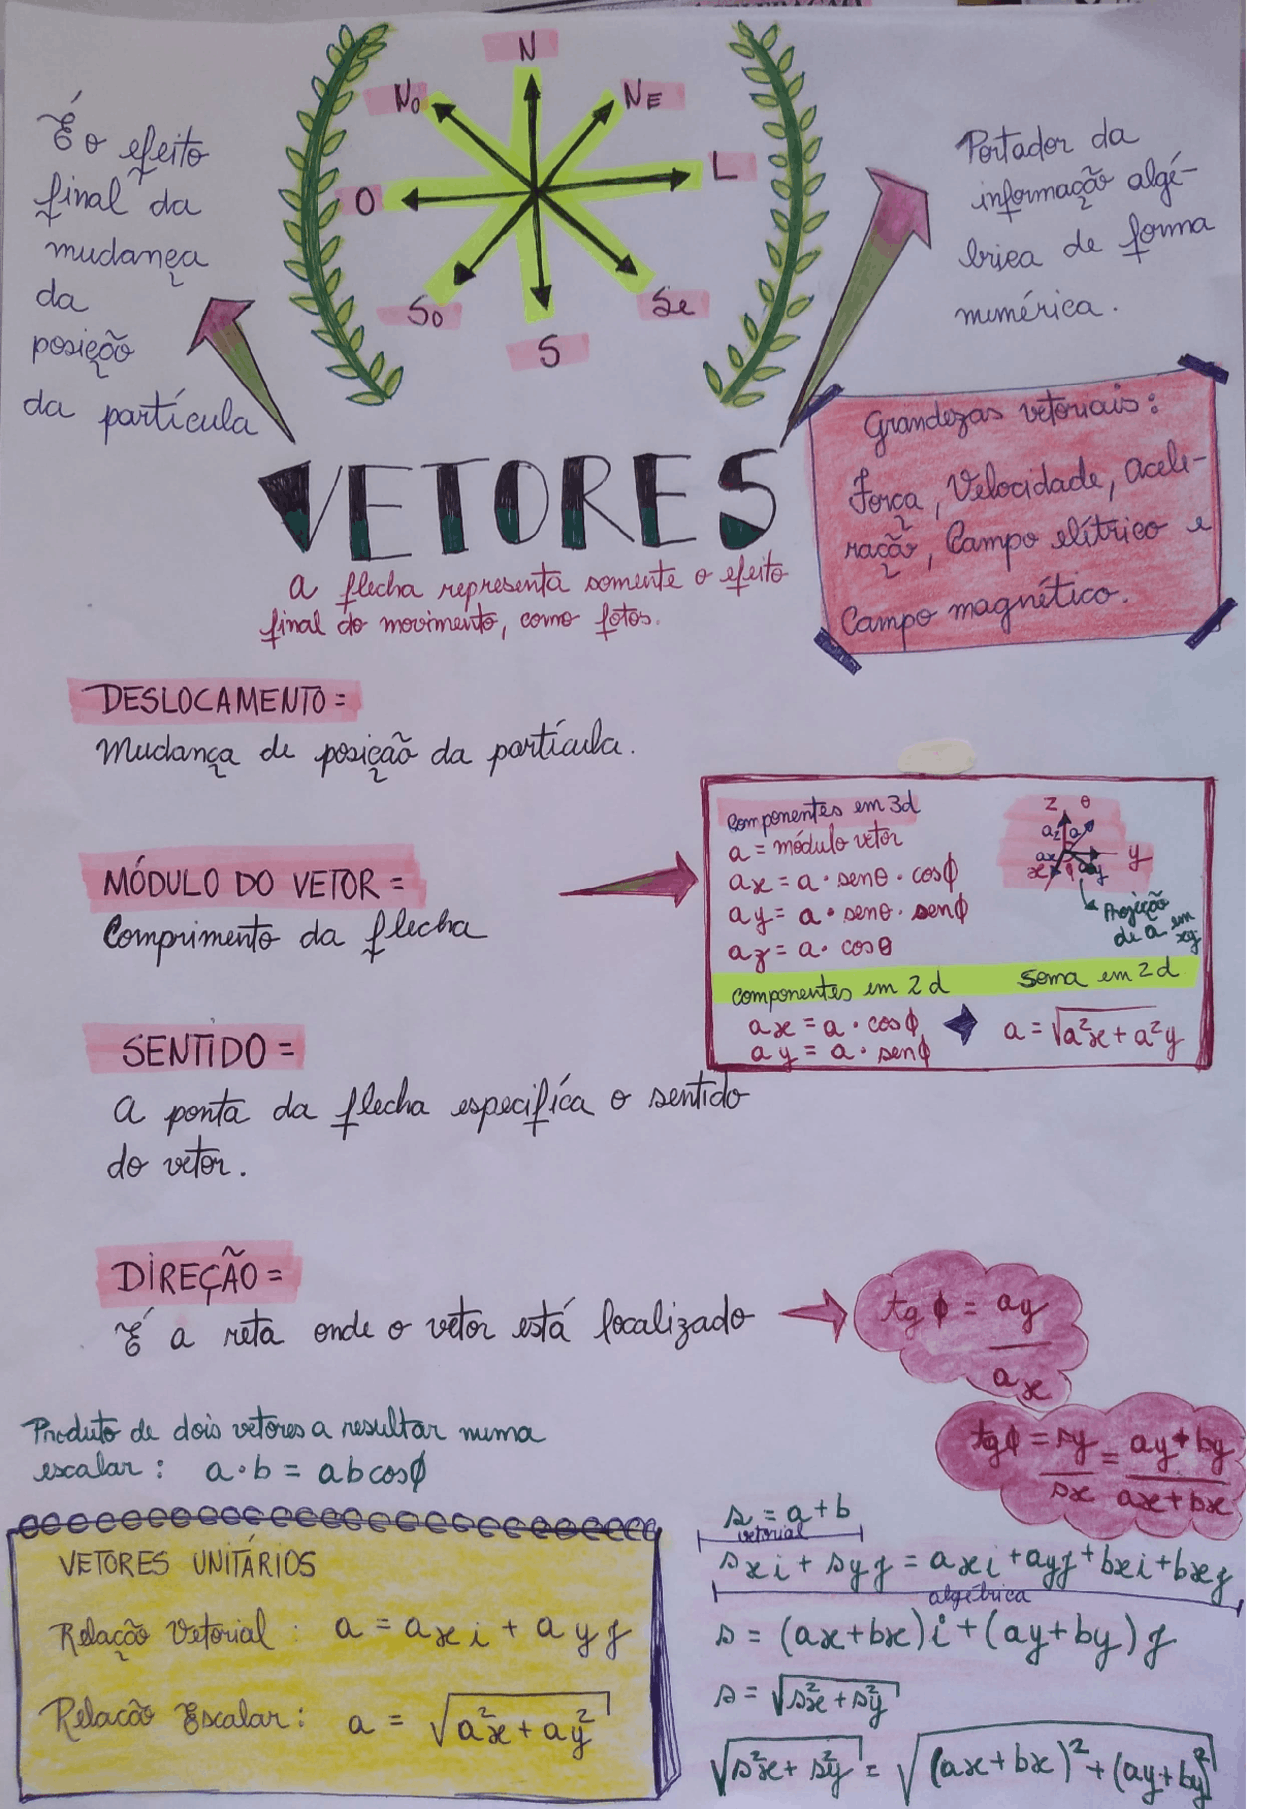 N
No
NE
O
L
So
Se
S
É o efeito
final da
mudança
da
posição
da partícula
Portador da
informação algé-
brica de forma
numérica.
VETORES
A flecha representa somente o efeito
final do movimento, como fotos.
Grandezas vetoriais:
Força, Velocidade, acele-
ração, Campo elítrico e
Campo magnético.
DESLOCAMENTO =
Mudança de posição da partícula.
MÓDULO DO VETOR =
Comprimento da flecha
componentes em 3d
a = módulo vetor
ax = a · senθ · cosϕ
ay = a · senθ · senϕ
az = a · cosθ
z θ
az a
ax
y
x ϕ ay
Projeção
de a em
xy
componentes em 2d
soma em 2d
ax = a · cosϕ
ay = a · senϕ
a = √a²x + a²y
SENTIDO =
A ponta da flecha específica o sentido
do vetor.
DIREÇÃO =
É a reta onde o vetor está localizado
tg ϕ = ay
ax
tgϕ = sy = ay + by
sx ax + bx
Produto de dois vetores a resultar numa
escalar: a · b = ab cosϕ
VETORES UNITÁRIOS
Relação Vetorial: a = axi + ayj
Relacão Escalar: a = √a²x + ay²
s = a + b
vetorial
sxi + syj = axi + ayj + bxi + bxj
algébrica
s = (ax + bx)i + (ay + by)j
s = √s²x + s²y
√s²x + s²y = √(ax + bx)² + (ay + by)²